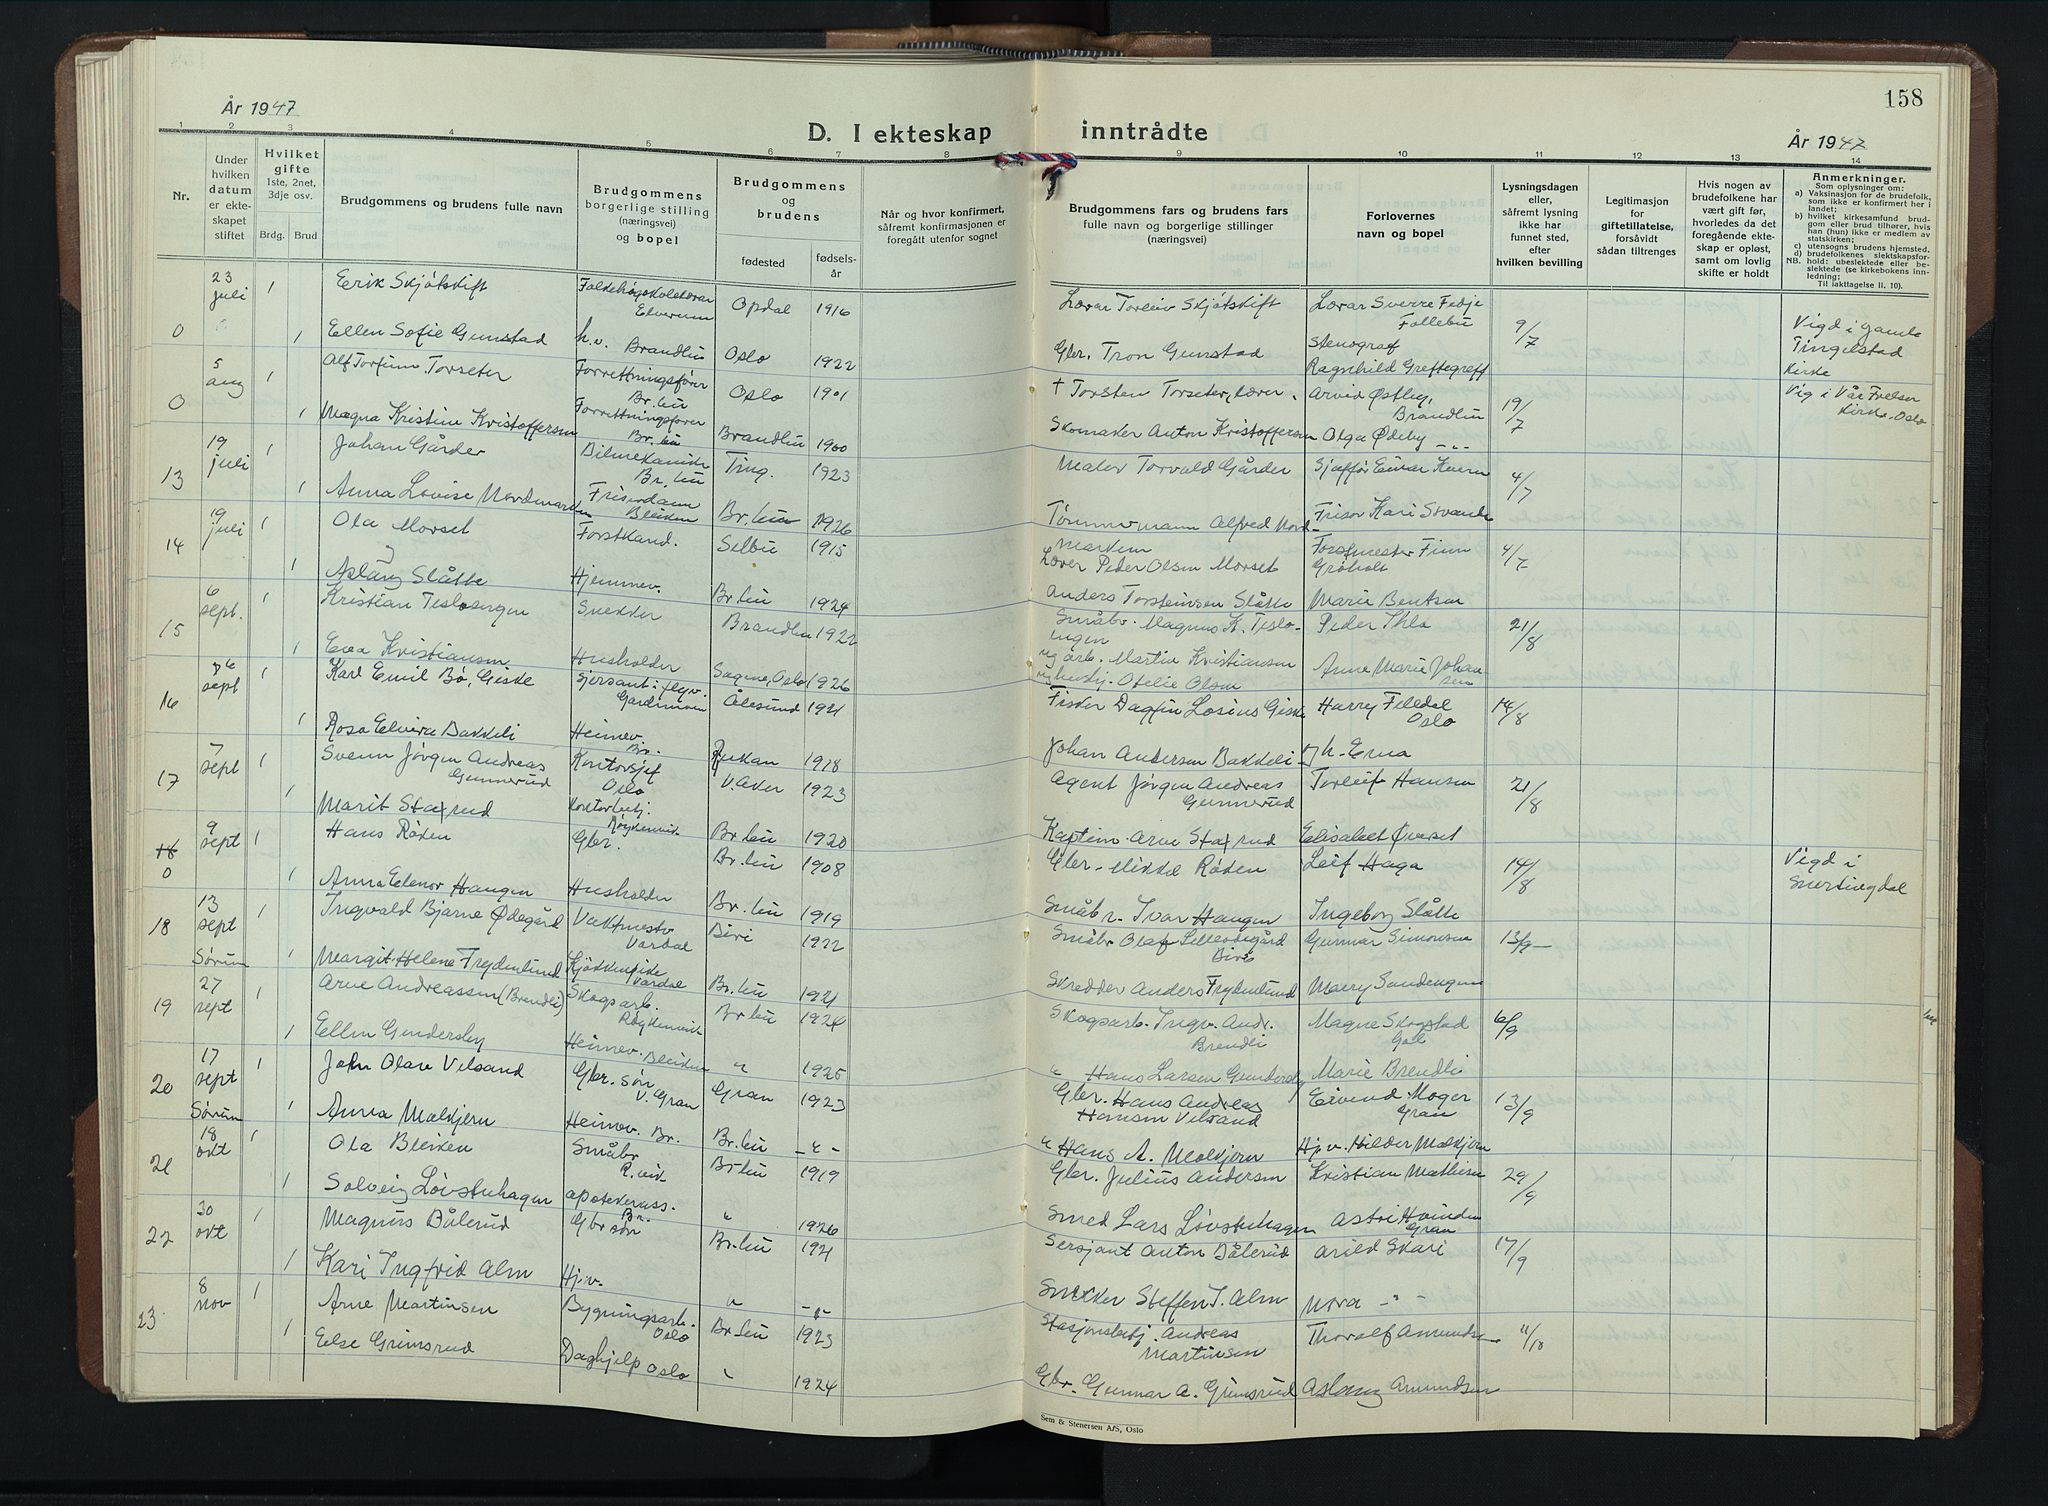 År 1947
D. I ekteskap inntrådte
158
År 1947
1 2 3 4 5 6 7 8 9 10 11 12 13 14
Nr.
Under hvilken datum er ekteskapet stiftet
Hvilket gifte 1ste, 2net, 3dje osv.
Brdg. Brud
Brudgommens og brudens fulle navn
Brudgommens borgerlige stilling (næringsvei) og bopel
Brudgommens og brudens
fødested fødselsår
Når og hvor konfirmert, såfremt konfirmasjonen er foregått utenfor sognet
Brudgommens fars og brudens fars fulle navn og borgerlige stillinger (næringsvei)
Forlovernes navn og bopel
Lysningsdagen eller, såfremt lysning ikke har funnet sted, efter hvilken bevilling
Legitimasjon for giftetillatelse, forsåvidt sådan tiltrenges
Hvis nogen av brudefolkene har vært gift før, hvorledes da det foregående ekteskap er opløst, samt om lovlig skifte er holdt
Anmerkninger.
Som oplysninger om:
a) Vaksinasjon for de brudefolk, som ikke er konfirmert her i landet;
b) hvilket kirkesamfund brudgom eller brud tilhører, hvis han (hun) ikke er medlem av statskirken;
c) utensogns brudens hjemsted.
d) brudefolkenes slektskapsforhold: ubeslektede eller beslektede (se kirkebokens innledning;
NB. Til iakttagelse II. 10).
0 23 juli 1 Erik Skjøtskift Folkehøgskolelærar Elverum Opdal 1916 Lærar Torleiv Skjøtskift Lærar Sverre Fedje Follebu 9/7 Vigd i gamle Tingelstad kirke
1 Ellen Sofie Gunstad h.v. Brandbu Oslo 1922 Gbr. Tron Gunstad Stenograf Ragnhild Greftegreff
0 5 aug 1 Alf Torfinn Torseter Forretningsfører Br.bu Oslo 1901 + Torsten Torseter, lærer. Arvid Østby, Brandbu 19/7 Vig i Vår Frelser kirke, Oslo
1 Magna Kristine Kristoffersen Forretningsfører Br.bu Brandbu 1900 Skomaker Anton Kristoffersen Olga Ødeby -"-
13 19 juli 1 Johan Gårder Bilmekaniker Br.bu Ting. 1923 Maler Torvald Gårder Sjåfør Einar Kvern 4/7
1 Anna Lovise Nordmarken Friserdame Bleiken Br.bu 1926 Tømmermann Alfred Nordmarken Frisør Kari
14 19 juli 1 Ola Morset Forstkand. Selbu 1915 Lærer Peder Olsen Morset Forstmester Finn Grøholt 4/7
1 Aslaug Slåtte Hjemmev. Br.bu 1924 Anders Torsteinsen Slåtte Marie Bentsen
15 6 sept. 1 Kristian Tesloengen Snekker Brandbu 1922 Småbr. Magnus K. Tesloengen Peder Thlo 21/8
1 Eva Kristiansen Husholder Sagene, Oslo 1926 arb. Martin Kristiansen og Otelie Olsen Anne Marie Johansen
16 6 sept 1 Karl Emil Bø, Giske Sjersant i flyv. Gardermoen Ålesund 1921 Fisker Dagfin Losius Giske Harry Filldal Oslo 14/8
1 Rosa Elvira Bakkeli Heimev. Br. Rjukan 1918 Johan Andersen Bakkeli h. Erna
17 7 sept 1 Svenn Jörgen Andreas Gunnerud Kontorsjef Oslo V. Aker 1923 Agent Jörgen Andreas Gunnerud Torleif Hansen 21/8
1 Marit Staxrud Kontorbetj. Røykenvik Br.bu 1920 Kaptein Arve Staxrud Elisabet Øverset
18 0 9 sept 1 Hans Røken Gbr. Br.bu 1908 Gbr. Mikkel Røken Leif Haga 14/8 Vigd i Snertingdal
1 Anna Elenor Haugen Husholder Br.bu 1919 Småbr. Ivar Haugen Ingeborg Slåtte
18 13 sept 1 Ingvald Bjarne Ødegård Vaktmester Vardal Biri 1922 Småbr Olaf Lilleødegård Biri Gunnar Simonsen 13/9
Sørum 1 Margit Helene Frydenlund Kjøkkenpike Vardal Br.bu 1921 Skredder Anders Frydenlund Marry Sandengen
19 27 sept 1 Arne Andreassen (Brendli) Skogsarb. Røykenvik Br.bu 1924 Skogsarb. Ingv. Andr. Brendli Magne Skogstad Gol 6/9
1 Ellen Gundersby Heimev. Bleiken " 1925 " Hans Larsen Gundersby Marie Brendli
20 17 sept 1 John Olav Velsand Gbr. søn V. Gran Gran 1923 Gbr. Hans Andreas Hansen Velsand Eivind Moger Gran 13/9
Sørum 1 Anna Mælkjern Heimev. Br. Br.bu -"- " Hans A. Mælkjern Hj.v. Hilder Mælkjern
21 18 okt 1 Ola Bleiken Småbr R.vik Br.bu 1919 Gbr. Julius Andersen Kristian Mathisen 29/9
1 Solveig Løvstuhagen apotekerass. Br. " 1926 Smed Lars Løvstuhagen Astri Hvinden Gran
22 30 okt 1 Magnus Dålerud Gbr søn Br.bu 1921 Sersjant Anton Dålerud Arild Skari 17/9
1 Kari Ingfrid Alm Hj.v. " -"- Snekker Steffen T. Alm Nora - " -
23 8 nov 1 Arne Martinsen Bygningsarb. Oslo Br.bu 1923 Stasjonsbetj. Andreas Martinsen Thoralf Amundsen 11/10
1 Else Grimsrud Daghjelp Oslo " 1924 Gbr. Gunnar A. Grimsrud Aslaug Amundsen
Sem & Stenersen A/S, Oslo